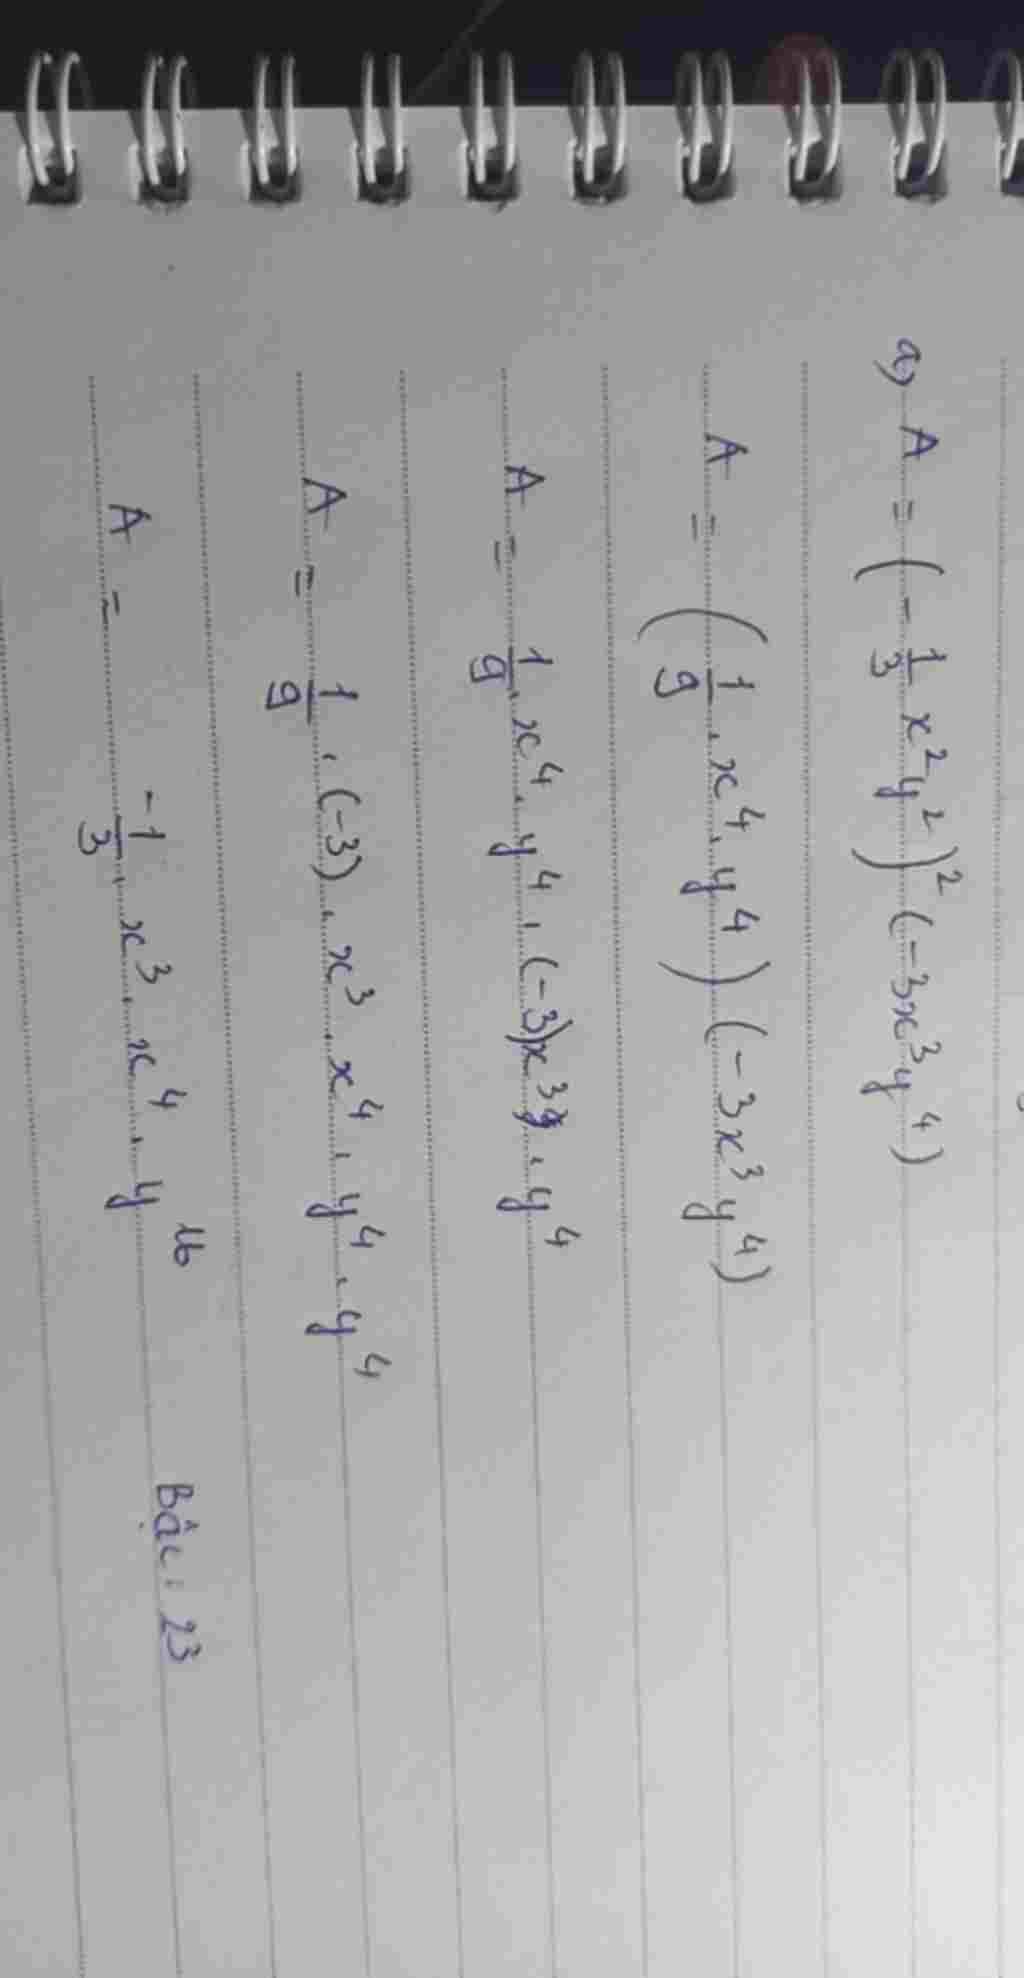 a) A = (-1/3 x²y²)² (-3x³y⁴)
A = (1/9 . x⁴ . y⁴) (-3x³y⁴)
A = 1/9 . x⁴ . y⁴ . (-3)x³ . y⁴
A = 1/9 . (-3) . x³ . x⁴ . y⁴ . y⁴
A = -1/3 . x³ . x⁴ . y¹⁶ Bậc : 23